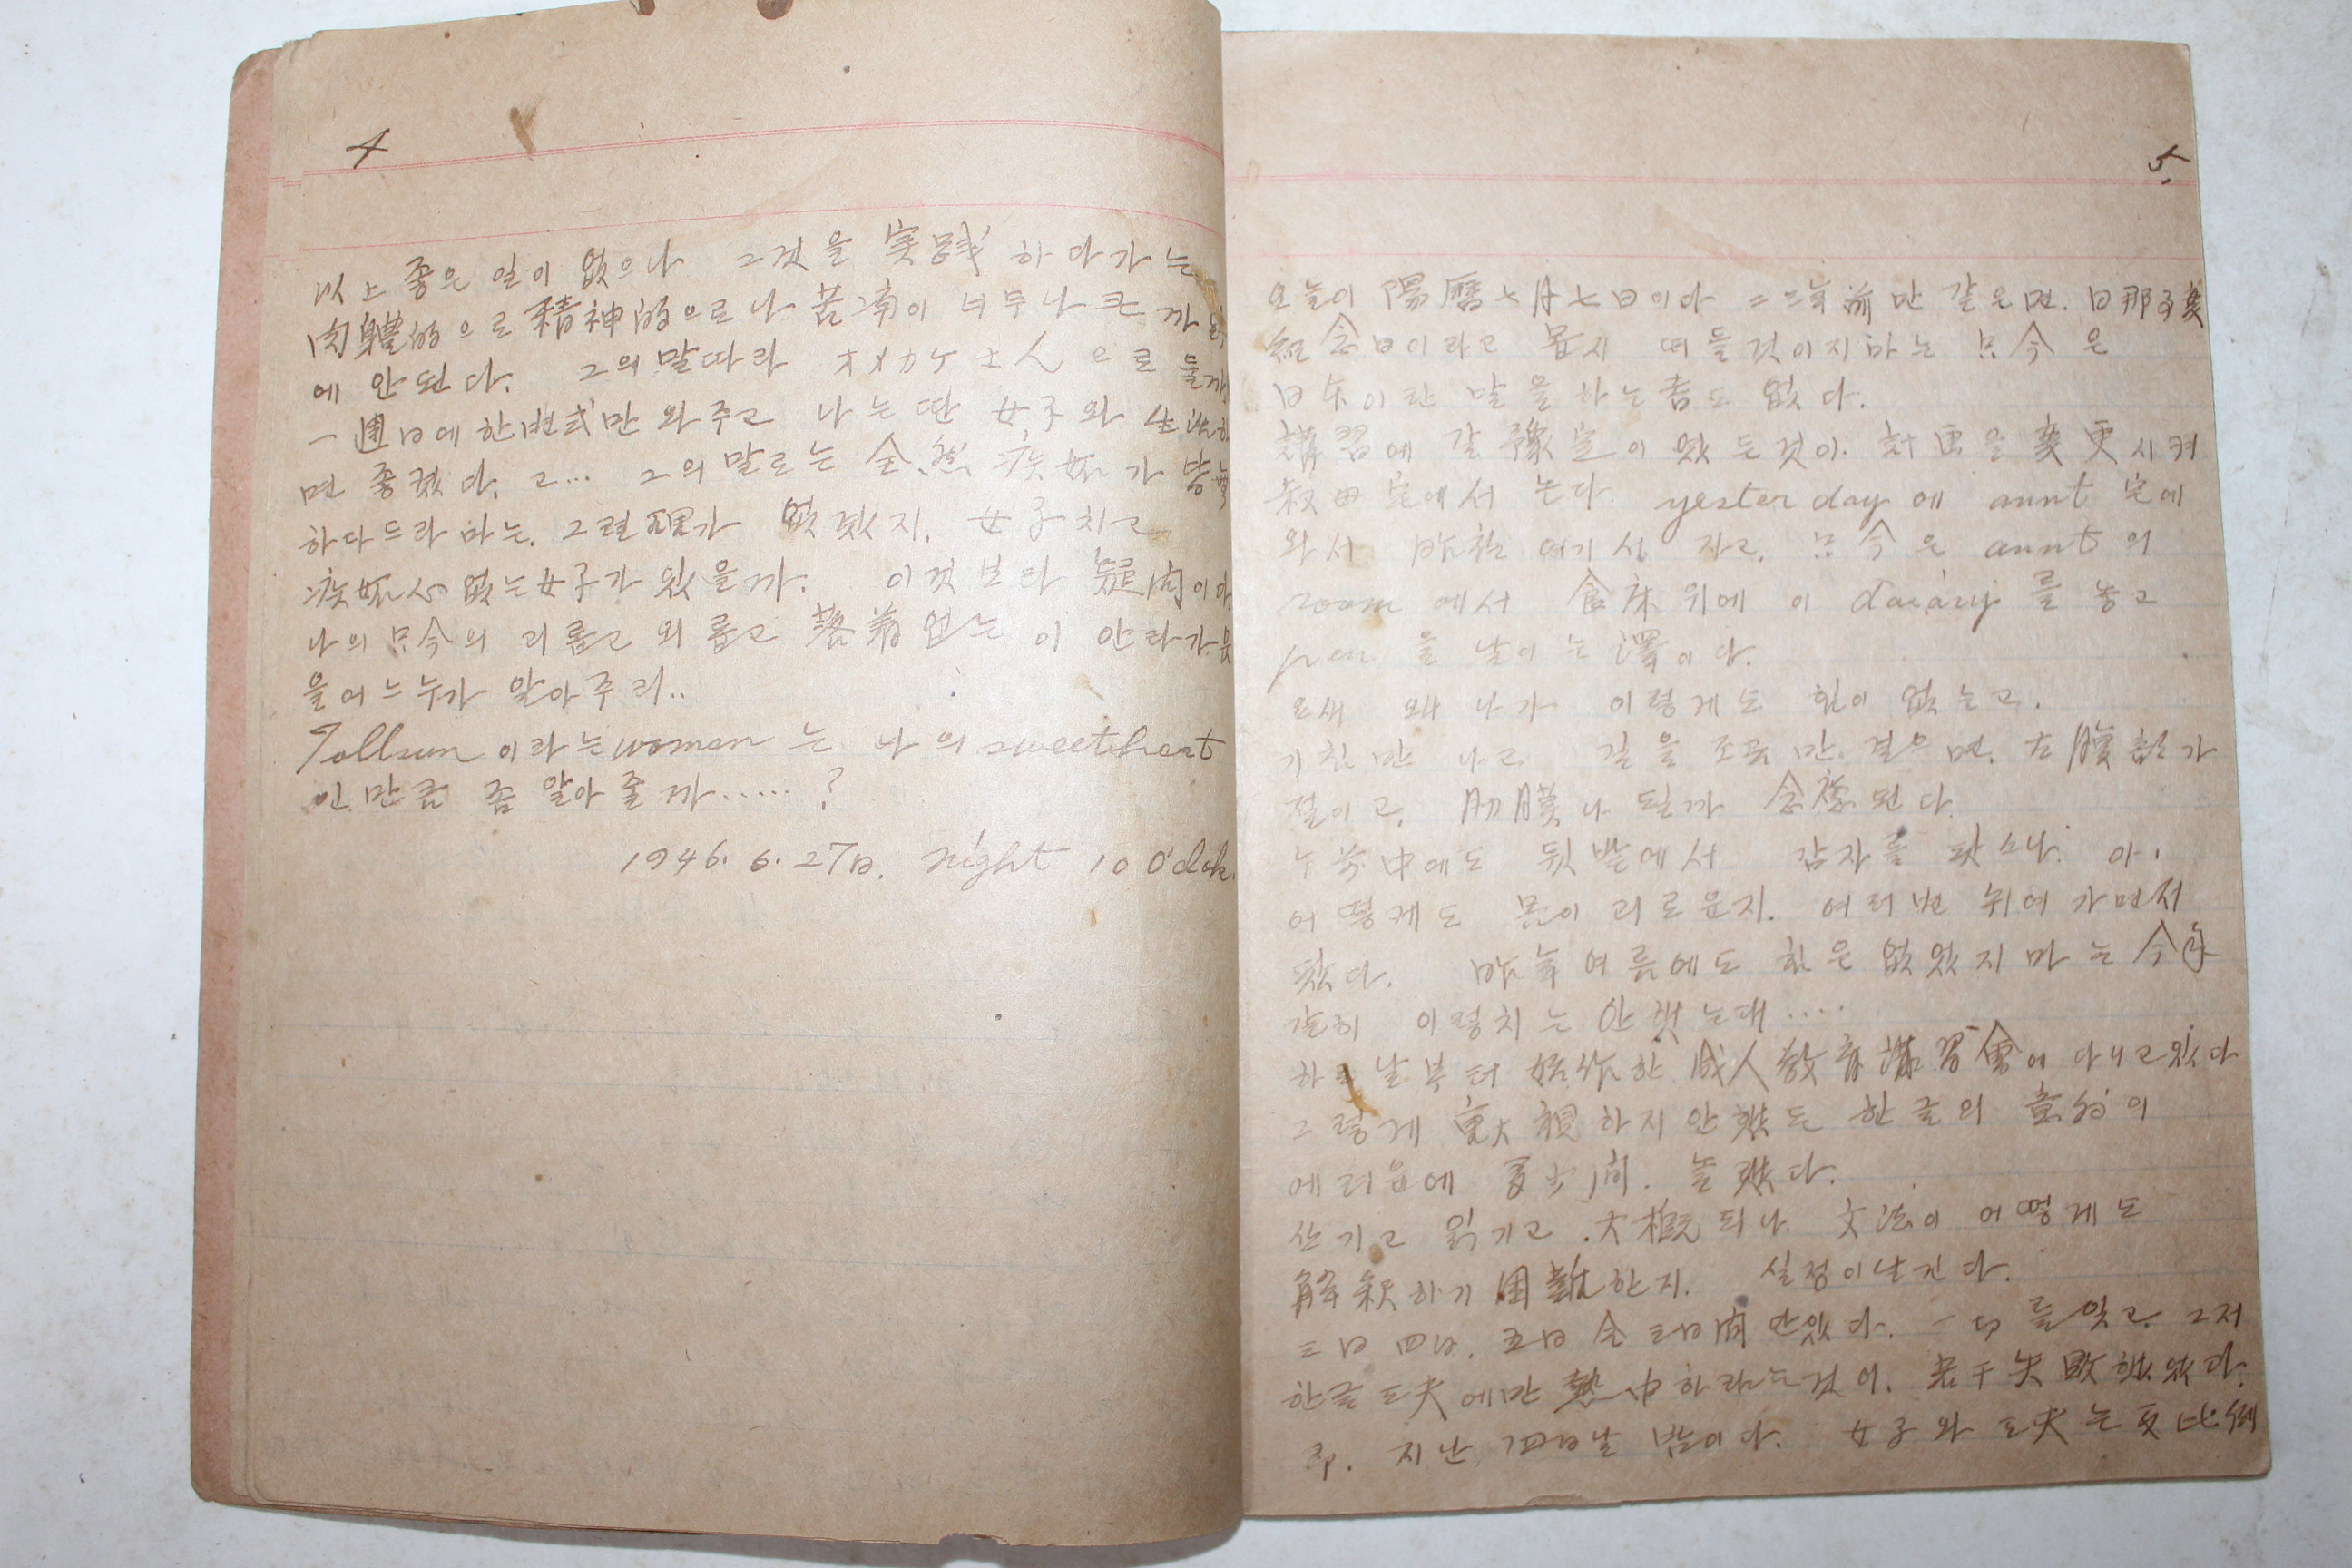 4
以上 좋은 일이 없으나 그것을 実践 하다가는
肉體的으로 精神的으로나 苦痛이 너무나 큰 까
에 안된다. 그의 말따라 オメカケ さん 으로 둘까
一週日에 한번式만 와주고 나는 딴 女子와 生活하
면 좋겠다. 고... 그의 말로는 全然 疾妬가 皆無
하다드라 마는. 그럴 理가 없겠지. 女子치고
疾妬心 없는 女子가 있을까. 이것보다 疑問이다
나의 只今의 괴롭고 외롭고 落着없는 이 안타가믐
을 어느누가 알아주리..
Tollsun 이라는 woman 는 나의 sweetheart
인 만큼 좀 알아 줄까......?
1946. 6. 27日. night 10 O'clok.
5.
오늘이 陽曆 七月七日이다 二三年前만 같은면. 日那事変
紀念日이라고 몹시 떠들것이지마는 只今은
日本이란 말을 하는者도 없다.
講習에 갈 豫定이 있든것이. 計画을 変更시켜
叔母宅에서 논다. yesterday에 aunt 宅에
와서 昨夜 여기서 자고. 只今은 aunt의
room 에서 食床위에 이 daiary를 놓고
pen을 날이는 澤이다.
요새 왜 나가 이렇게도 힘이 없는고.
기침만 나고 길을 조곰만 걸으면. 左腹部가
절이고. 肋膜나 될까 念慮된다.
午前中에도 뒷밭에서 감자를 팟스나. 아.
어떻게도 몸이 괴로운지. 여러번 쉬여가면서
팠다. 昨年 여름에도 힘은 없었지마는 今年
같히 이렇치는 안했는대....
하로날부터 始作한 成人教育講習會에 다니고있다
그렇게 寛大視하지 안했든 한글의 意外의
에려움에 多少間. 놀랬다.
쓰기고 읽기고. 大槪되나. 文法이 어떻게도
解釈하기 困難한지. 실정이난긴다.
三日 四日. 五日 全三日間 만있다. 一切를잊고. 그저
한글工夫에만 熱中하라는것이. 若干失敗했었다.
即. 지난 四日날 밤이다. 女子와 工夫는 反比例